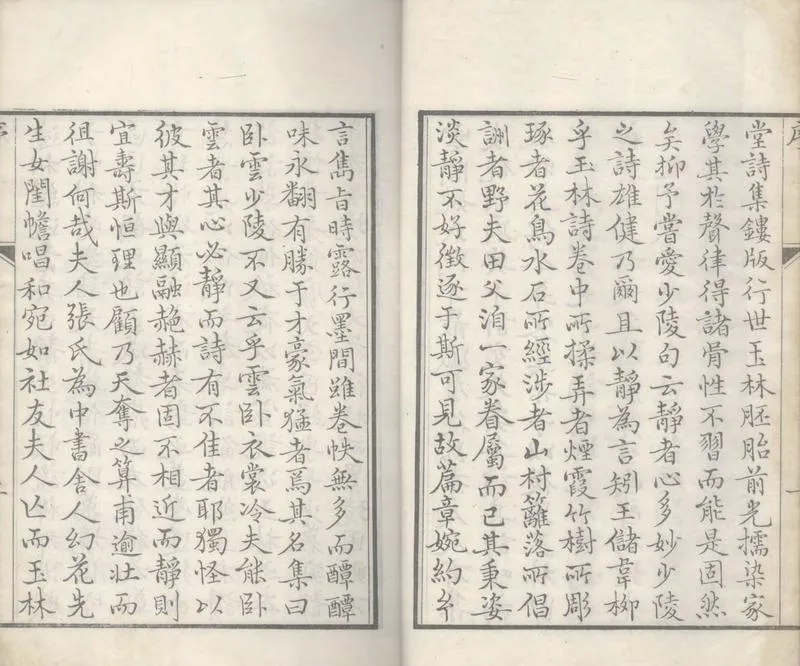 堂詩集鏤版行世玉林胚胎前光擩染家
學其於聲律得諸骨性不習而能是固然
矣抑予嘗愛少陵句云靜者心多妙少陵
之詩雄健乃爾且以靜為言矧王儲韋柳
乎玉林詩卷中所揉弄者煙霞竹樹所彫
琢者花鳥水石所經涉者山村籬落所倡
詶者野夫田父洎一家眷屬而已其秉姿
淡靜不好徵逐于斯可見故篇章婉約
言雋旨時露行墨間雖卷帙無多而醰醰
味永翻有勝于才豪氣猛者焉其名集曰
臥雲少陵不又云乎雲臥衣裳冷夫能臥
雲者其心必靜而詩有不佳者耶獨怪以
彼其才與顯融赩赫者固不相近而靜則
宜壽斯恒理也顧乃天奪之算甫逾壯而
徂謝何哉夫人張氏為中書舍人幻花先
生女閨幨唱和宛如社友夫人亡而玉林